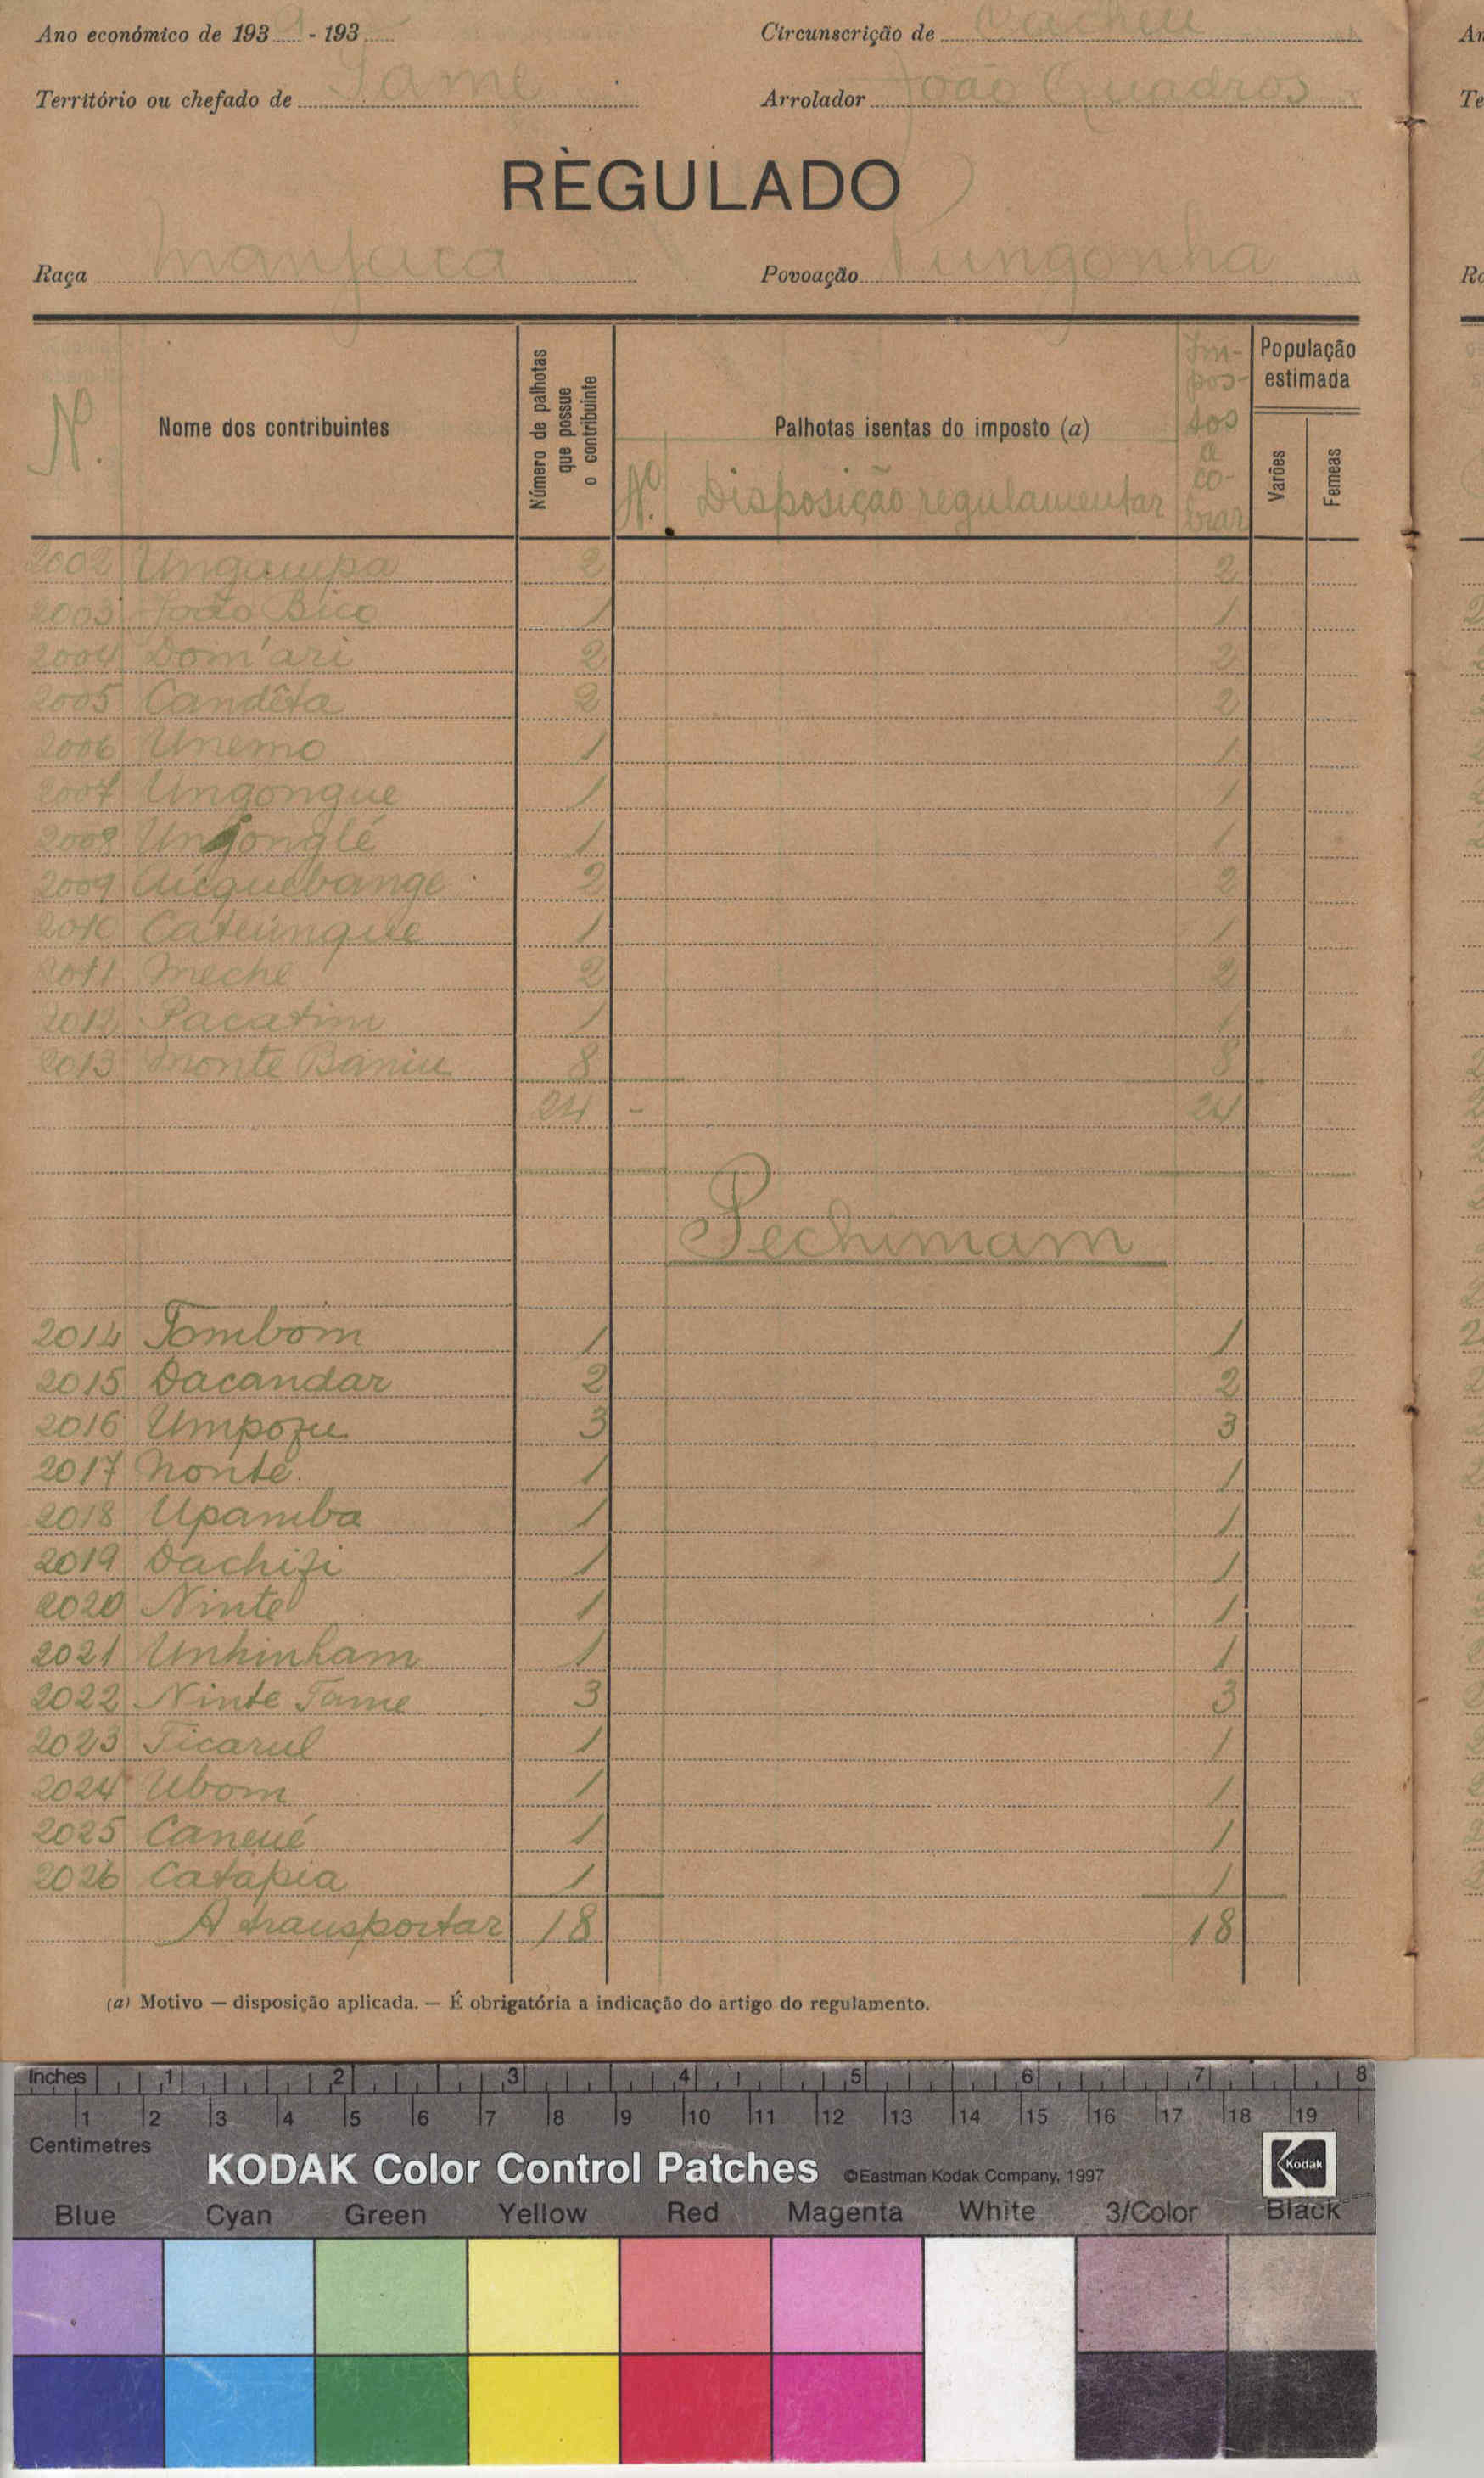 Ano económico de 193 - 193 Circunscrição de Cacheu
Território ou chefado de Tame Arrolador João Quadros
RÈGULADO
Raça Manjaca Povoação Pungonha
N.
Nome dos contribuintes
Número de palhotas que possue o contribuinte
Palhotas isentas do imposto (a)
Nº. Disposição regulamentar
Im-
pos-
tos
a
co-
brar
População estimada
Varões
Femeas
2002 Ungampa 2 2
2003 João Bico 1 1
2004 Dom'ari 2 2
2005 Candêta 2 2
2006 Unemo 1 1
2007 Ungongue 1 1
2008 Ungonglé 1 1
2009 2 2
2010 Cateúngue 1 1
2011 Meche 2 2
2012 Pacatim 1 1
2013 Monte Baniu 8 8
24 - 24
Pechimam
2014 Tombom 1 1
2015 Dacandar 2 2
2016 Umpozu 3 3
2017 Nonte 1 1
2018 Upamba 1 1
2019 Dachifi 1 1
2020 Ninte 1 1
2021 Unhinham 1 1
2022 Ninte Tame 3 3
2023 Ticarul 1 1
2024 Ubom 1 1
2025 Caneué 1 1
2026 Catapia 1 1
A transportar 18 18
(a) Motivo — disposição aplicada. — É obrigatória a indicação do artigo do regulamento.
Inches 1 2 3 4 5 6 7 8
1 2 3 4 5 6 7 8 9 10 11 12 13 14 15 16 17 18 19
Centimetres
KODAK Color Control Patches ©Eastman Kodak Company, 1997 Kodak
Blue Cyan Green Yellow Red Magenta White 3/Color Black